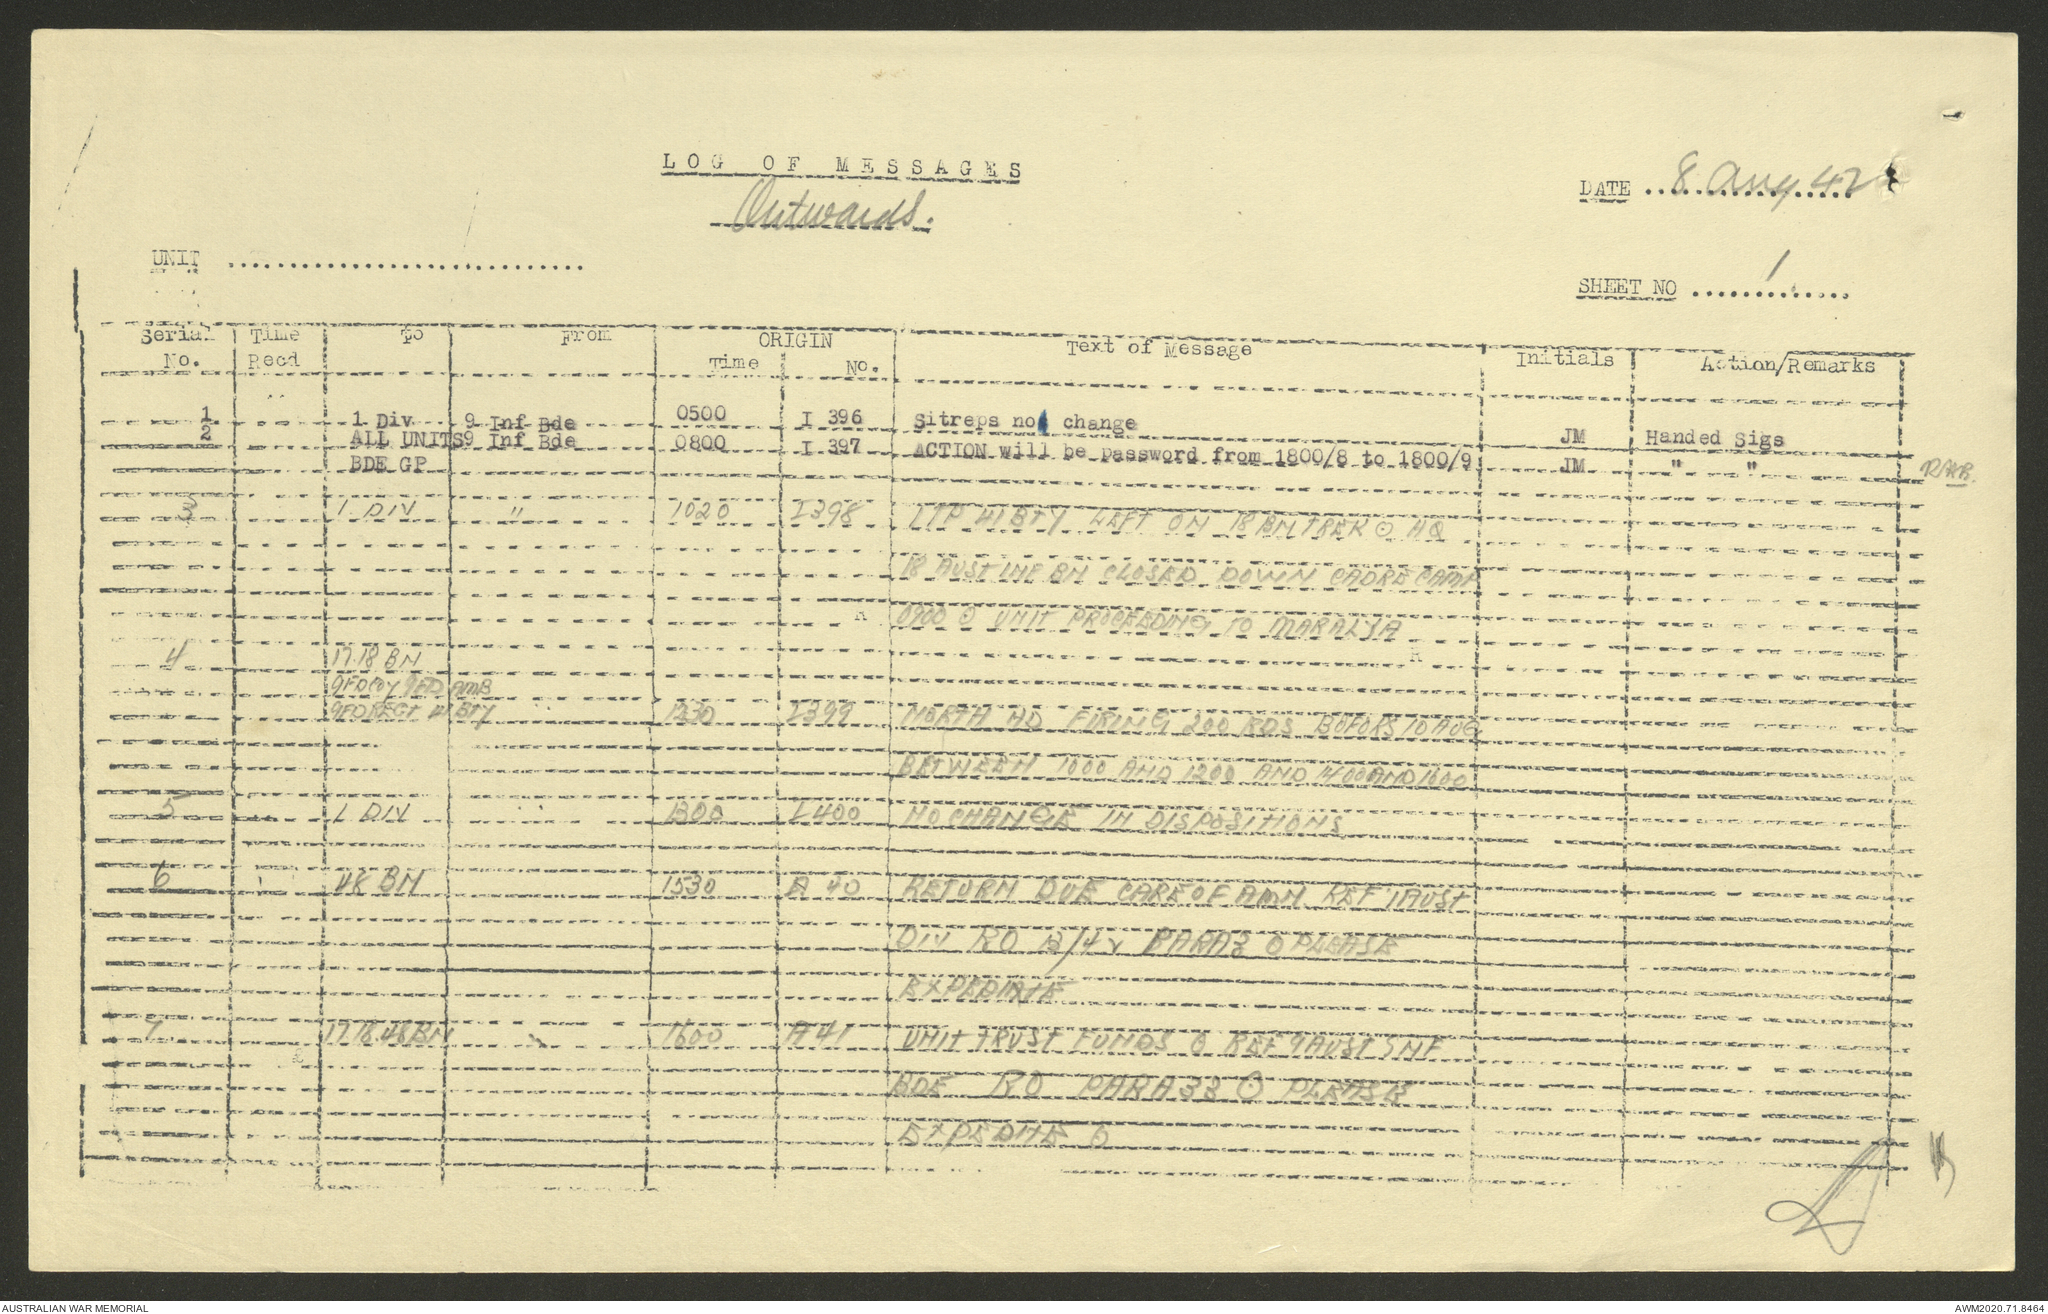 LOG OF MESSAGES
Outwards.
DATE ... 8 Aug 42
UNIT ..............................
SHEET NO ... 1 ...
Serial No. Time Recd To From ORIGIN Time No. Text of Message Initials Action/Remarks
1 1 Div 9 Inf Bde 0500 I 396 Sitreps no change JM Handed Sigs
2 ALL UNITS 9 Inf Bde 0800 I 397 ACTION will be password from 1800/8 to 1800/9 JM " "
BDE GP
3 1 DIV " 1020 I398 LTP 41 BTY LEFT ON 18 BN TREK ⊙ HQ
18 AUST INF BN CLOSED DOWN CADRE CAMP
0900 ⊙ UNIT PROCEEDING TO MARALYA
4 17.18 BN
9FD COY 9FD AMB
9FD REGT 41 BTY 1230 I399 NORTH HD FIRING 200 RDS BOFORS 10 AUG
BETWEEN 1000 AND 1200 AND 1400 AND 1600
5 1 DIV 1300 I400 NO CHANGE IN DISPOSITIONS
6 48 BN 1530 A 40 RETURN DUE CARE OF AMN REF 1 AUST
DIV RO PARA 3 ⊙ PLEASE
EXPEDITE
7 17.18.48 BN 1600 A 41 UNIT TRUST FUNDS ⊙ REF 9 AUST INF
BDE RO PARA 33 ⊙ PLEASE
EXPEDITE ⊙
AUSTRALIAN WAR MEMORIAL
AWM2020.71.8464